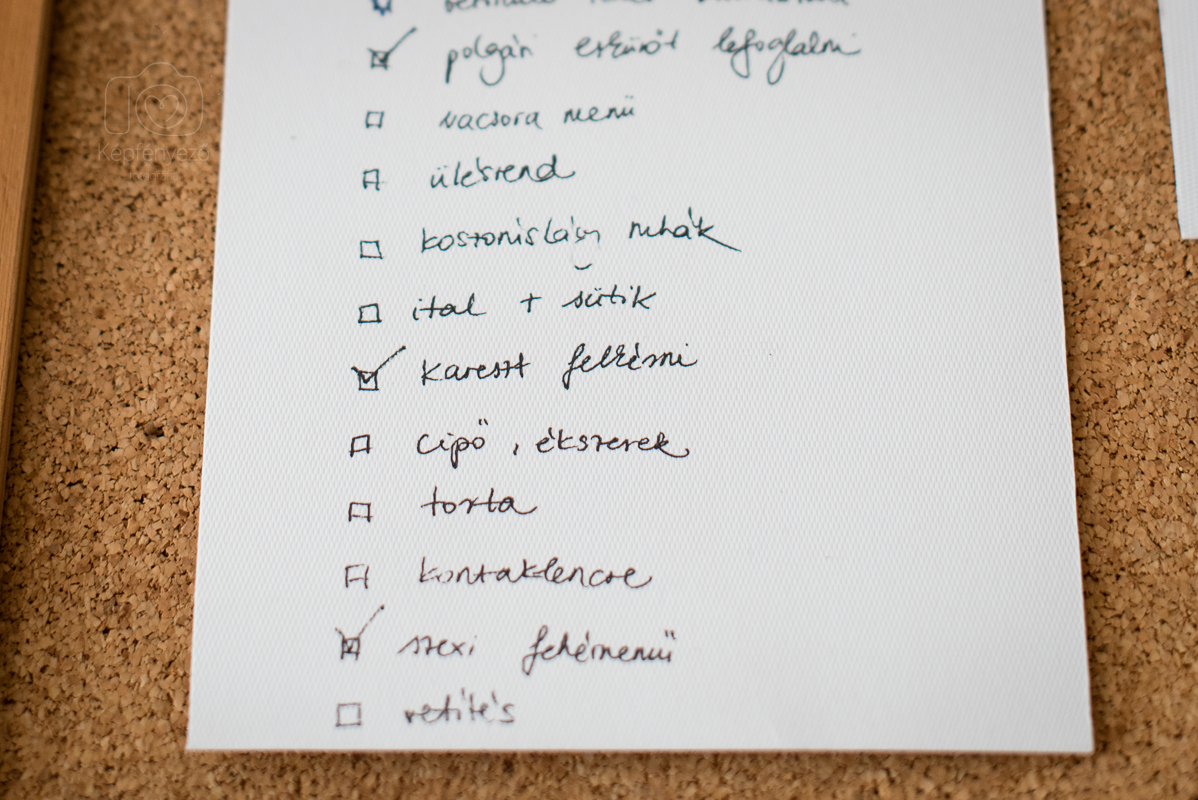 polgári esküvőt lefoglalni
vacsora menü
ülésrend
koszorúslány ruhák
ital + sütik
Kareszt felkérni
cipő, ékszerek
torta
kontaktlencse
szexi fehérnemű
vetítés
Képfényező